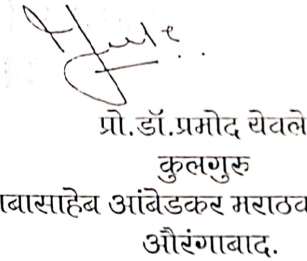 प्रो.डॉ.प्रमोद येवले
कुलगुरु
बासाहेब आंबेडकर मराठव
औरंगाबाद.